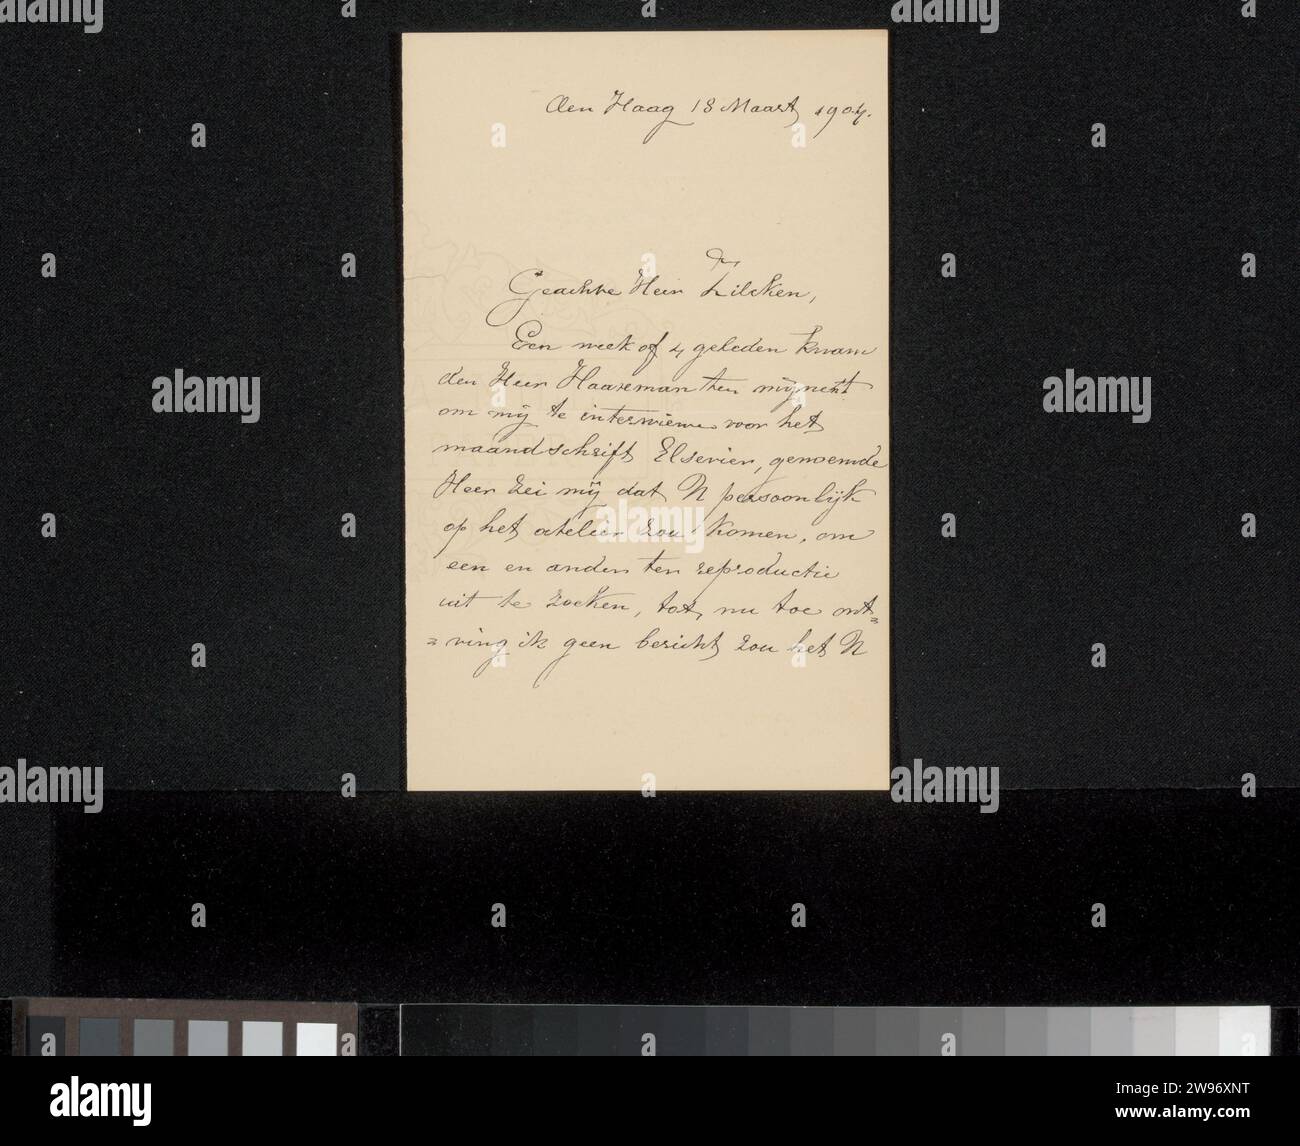 den Haag 18 Maart 1904.
Geachte Heer Zilcken,
Een week of 4 geleden kwam
den Heer Haareman ten mijnent
om mij te interviewe voor het
maandschrift Elsevier, genoemde
Heer zei mij dat U persoonlijk
op het atelier zou komen, om
een en ander ter reproductie
uit te zoeken, tot nu toe ont=
=ving ik geen bericht zou het U
alamy
Image ID: 2W96XNT
www.alamy.com